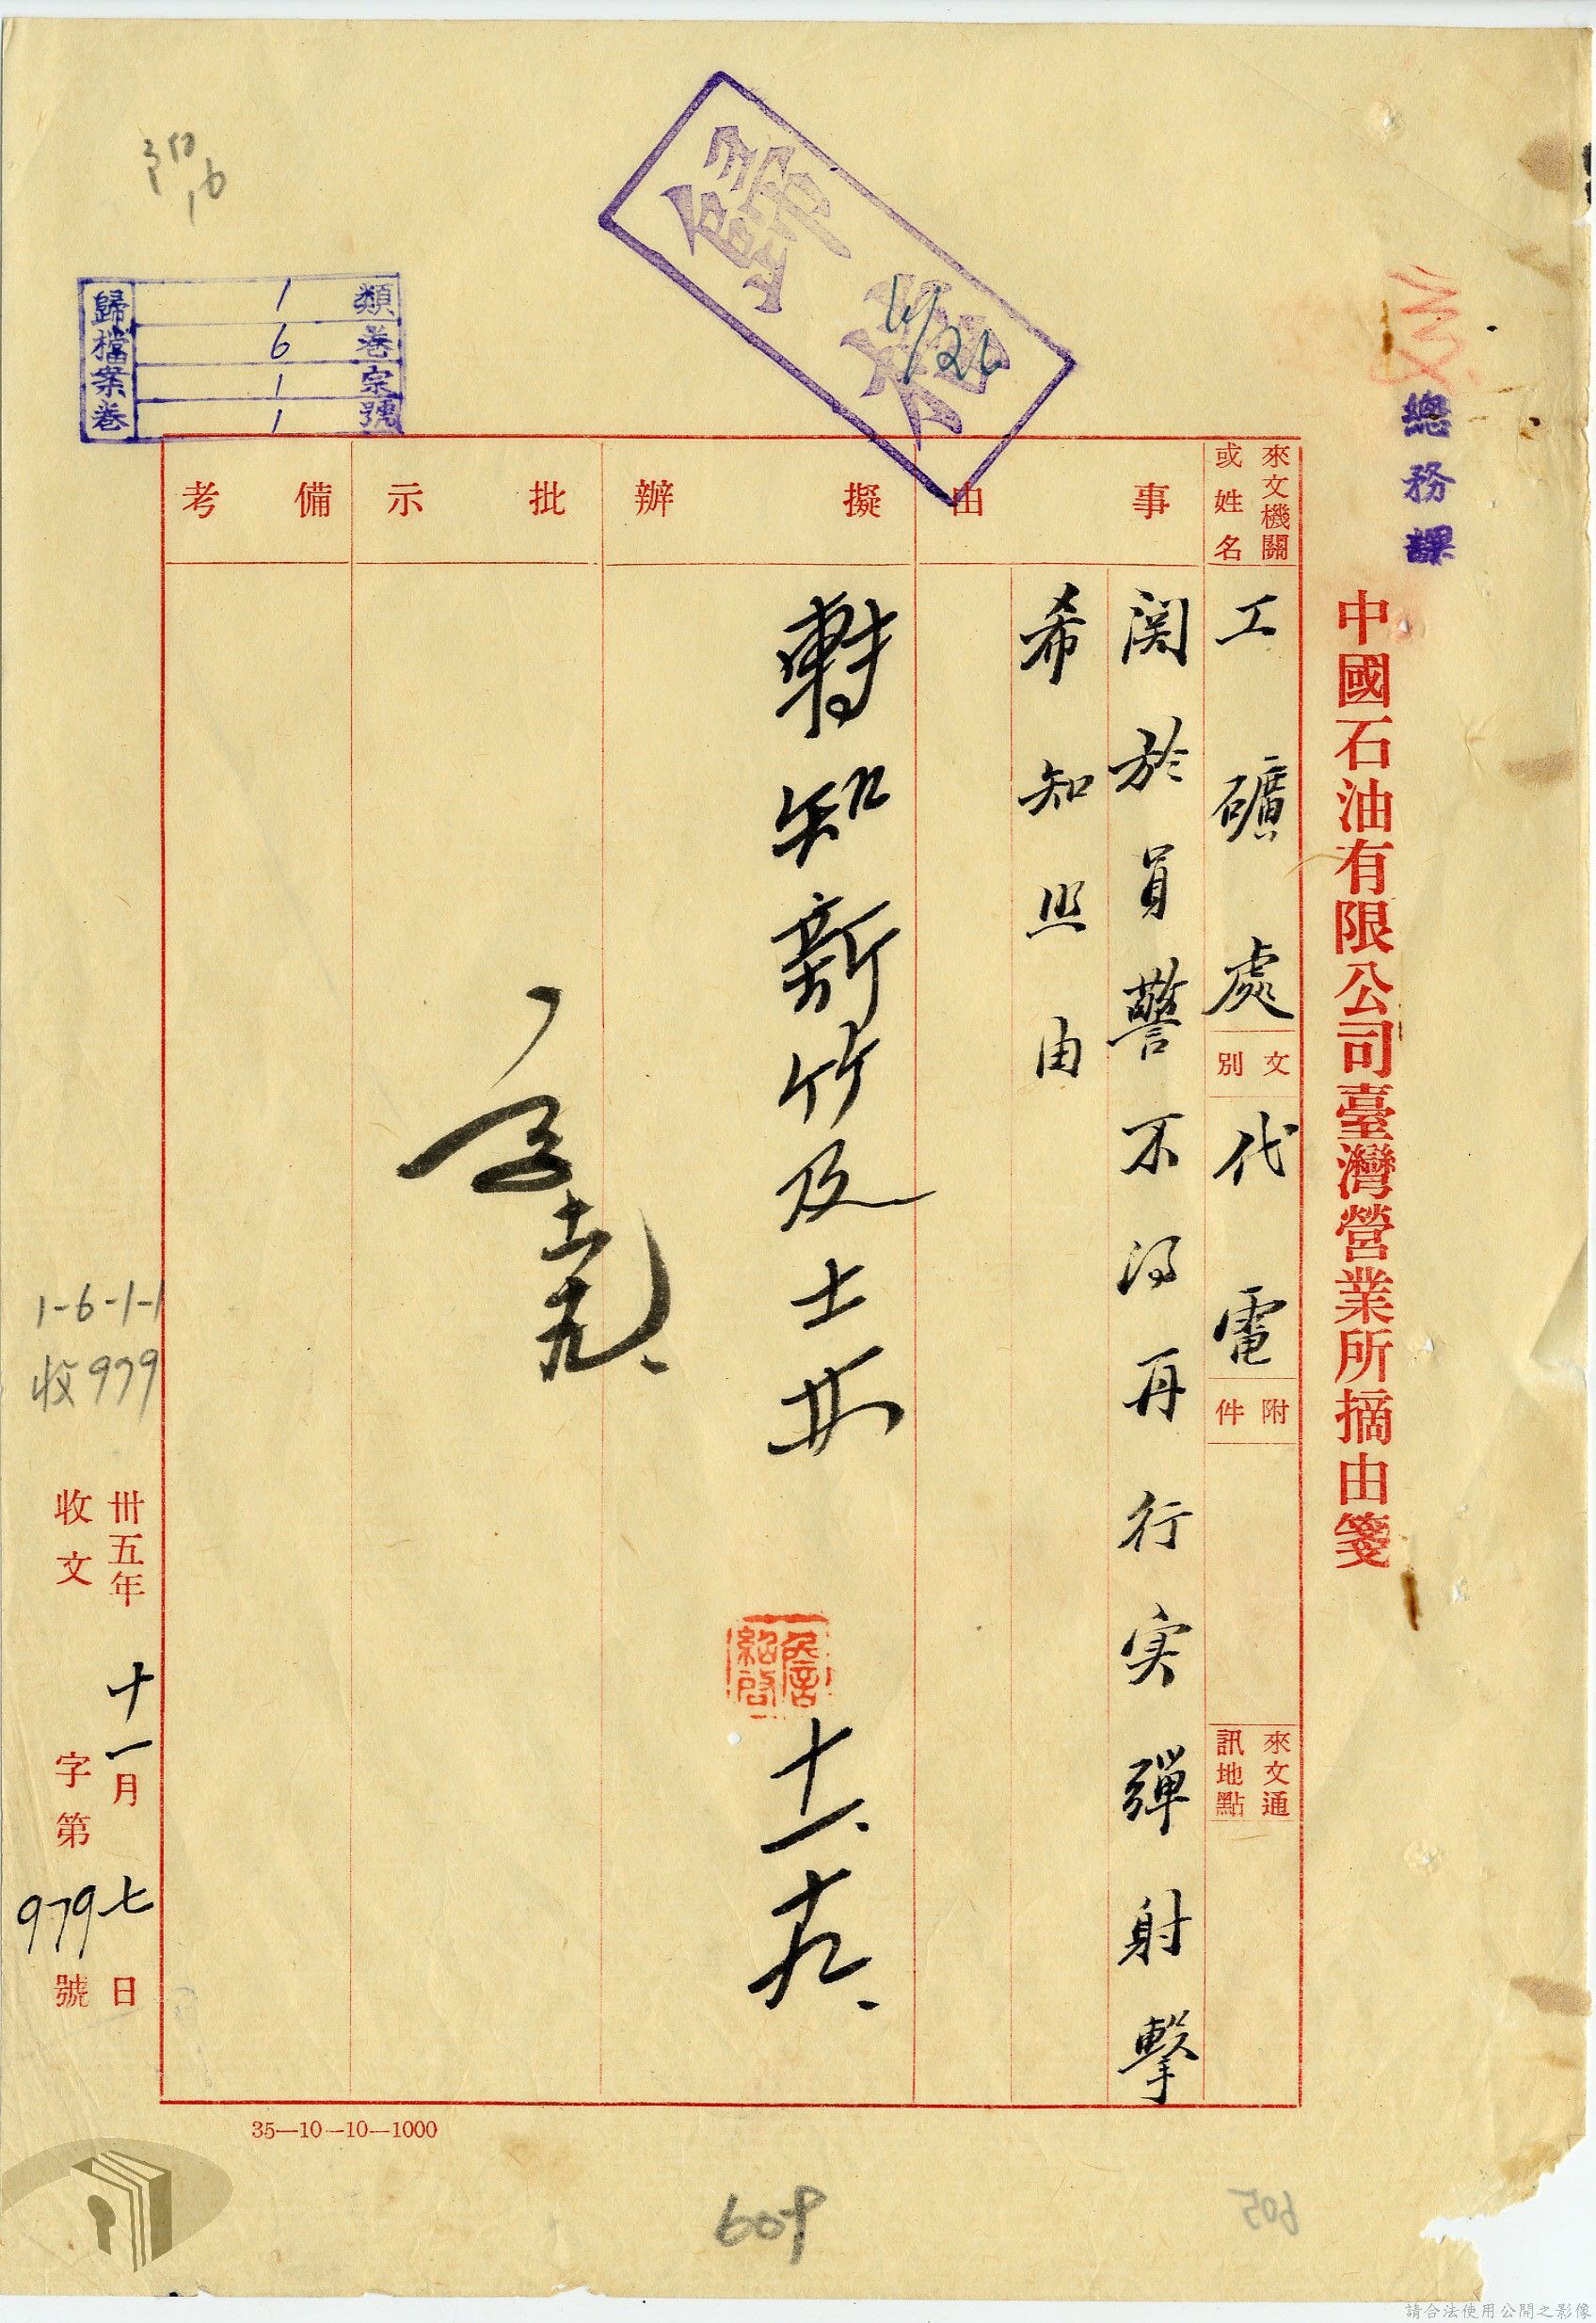 中國石油有限公司臺灣營業所摘由箋
總務課
來文機關
或姓名
工礦處
文別
代電
附件
來文通
訊地點
事由
関於員警不得再行实弹射擊
希知照由
擬辦
轉知新竹及士林
十一、十九、
批示
備考
卅五年十一月七日
收文字第979號
歸檔
11/26
歸檔案卷
類 1
卷 6
宗 1
號 1
1-6-1-1
收979
35—10—10—1000
609
605
請合法使用公開之影像